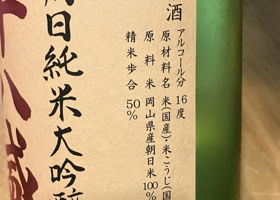 酒
アルコール分 16度
原材料名 米(国産)・米こうじ(国
原料米 岡山県産朝日米100%
精米歩合 50%
朝日純米大吟醸